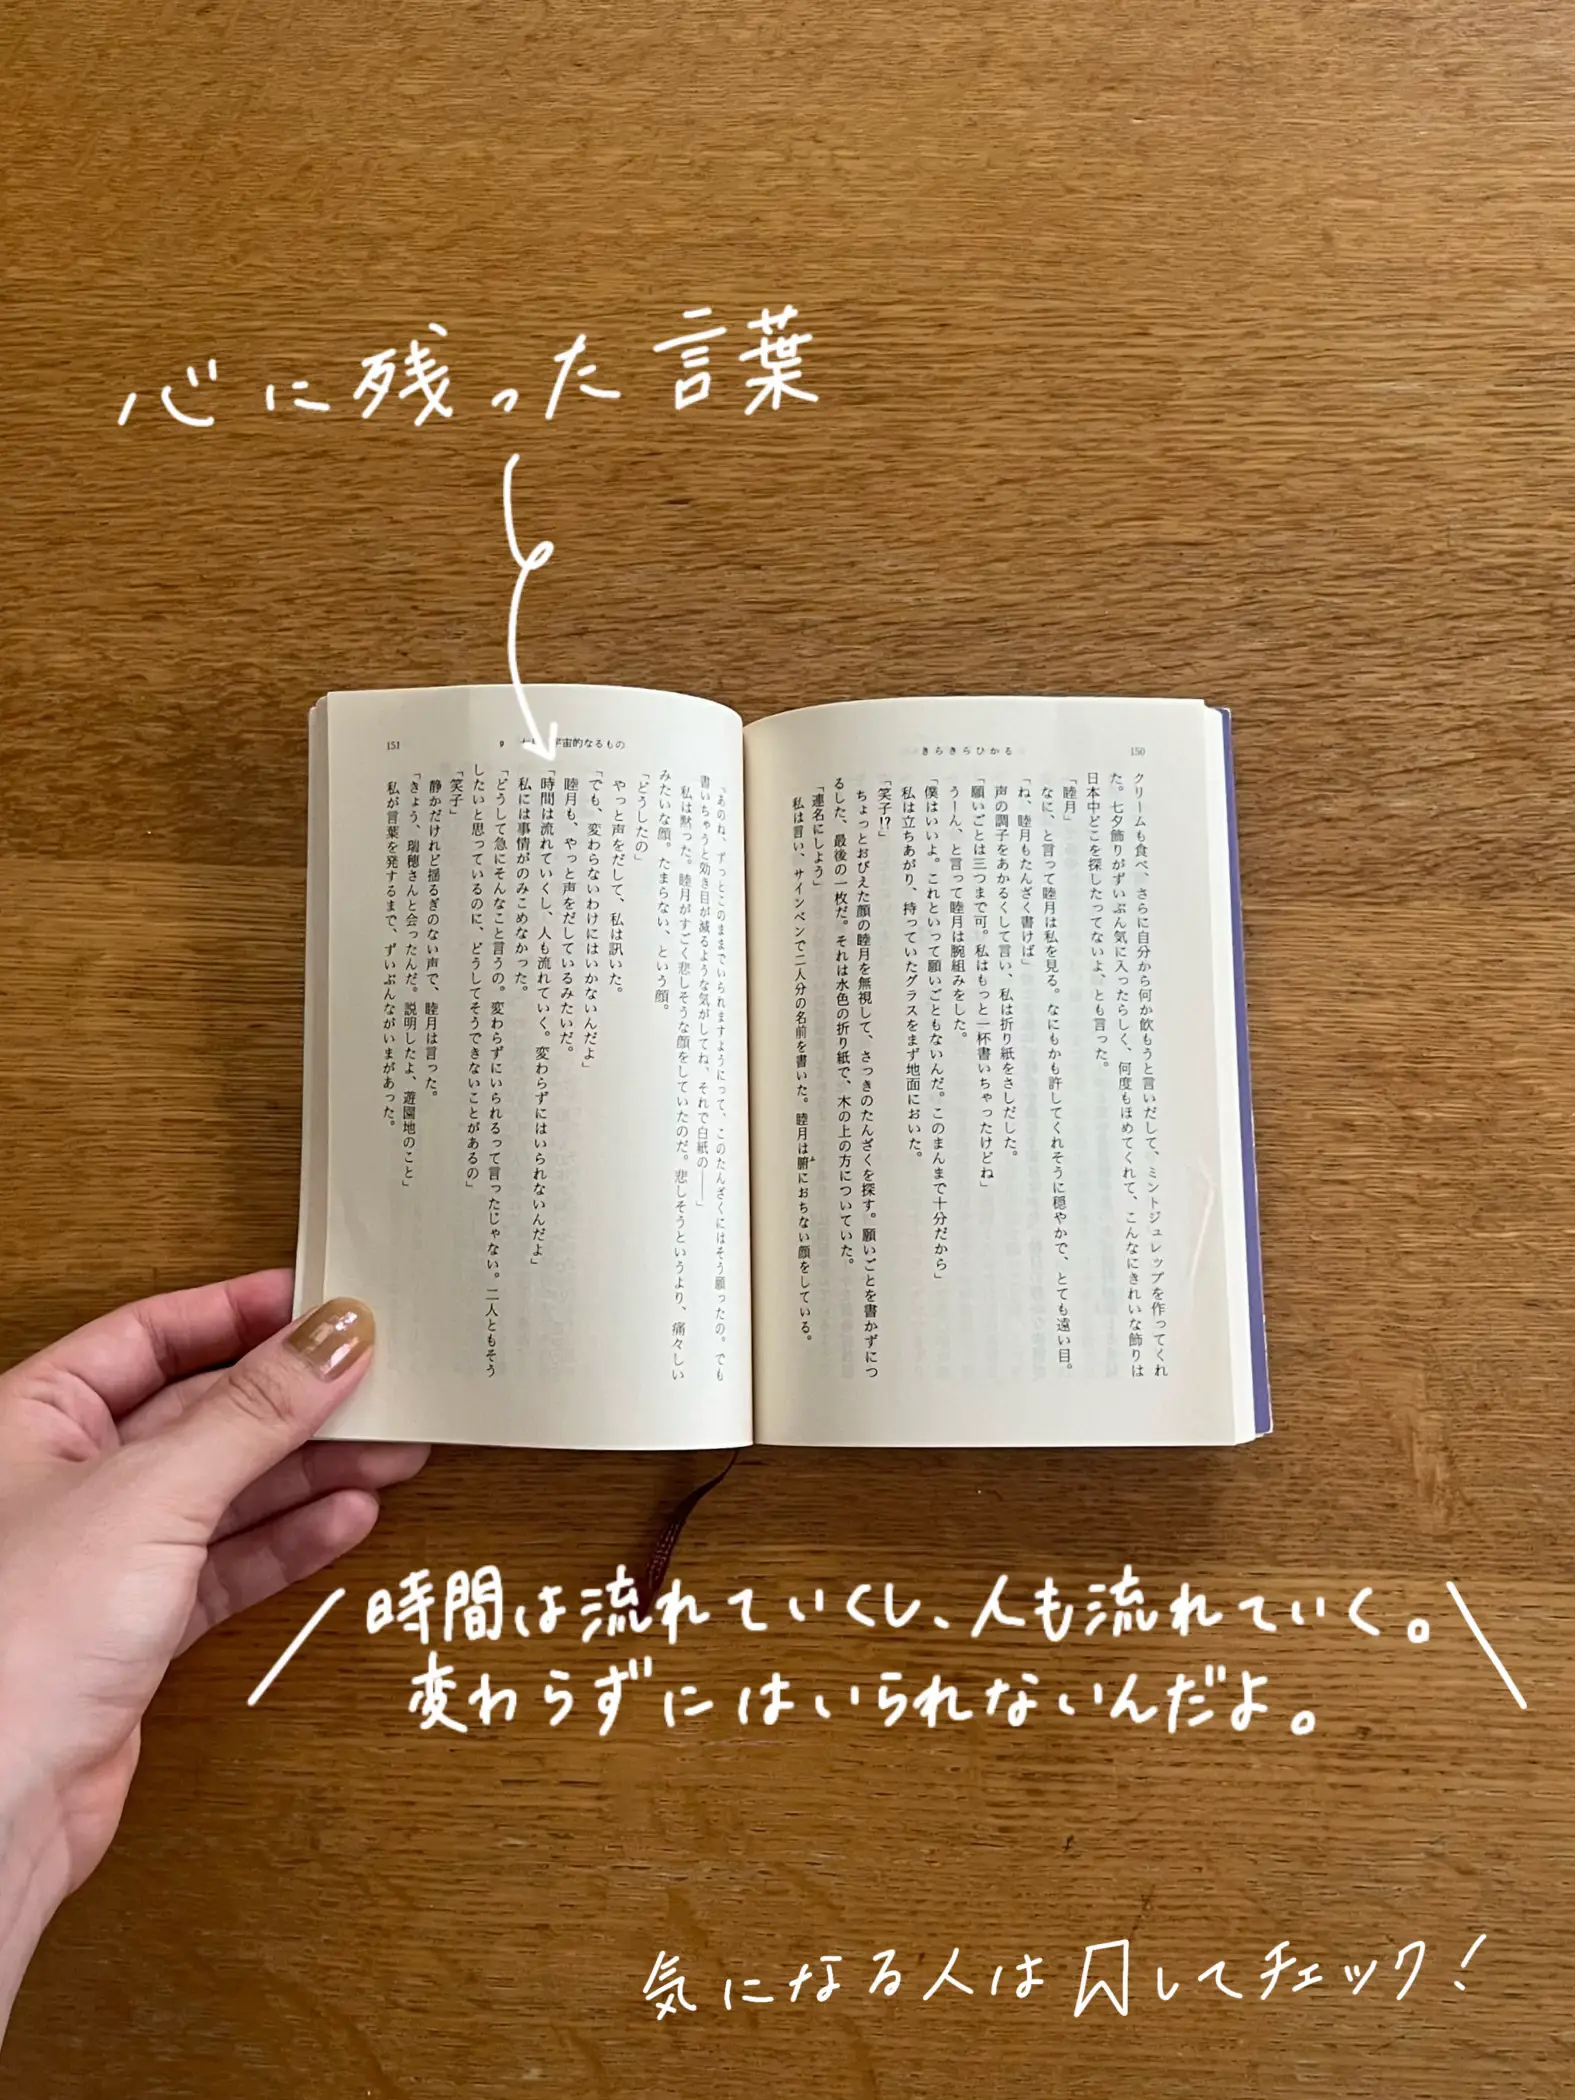 心に残った言葉
150
きらきらひかる
クリームも食べ、さらに自分から何か飲もうと言いだして、ミントジュレップを作ってくれ
た。七夕飾りがずいぶん気に入ったらしく、何度もほめてくれて、こんなにきれいな飾りは
日本中どこを探したってないよ、とも言った。
「睦月」
なに、と言って睦月は私を見る。なにもかも許してくれそうに穏やかで、とても遠い目。
「ね、睦月もたんざく書けば」
声の調子をあかるくして言い、私は折り紙をさしだした。
「願いごとは三つまで可。私はもっと一杯書いちゃったけどね」
うーん、と言って睦月は腕組みをした。
「僕はいいよ。これといって願いごともないんだ。このまんまで十分だから」
私は立ちあがり、持っていたグラスをまず地面においた。
「笑子!?」
ちょっとおびえた顔の睦月を無視して、さっきのたんざくを探す。願いごとを書かずにつ
るした、最後の一枚だ。それは水色の折り紙で、木の上の方についていた。
「連名にしよう」
私は言い、サインペンで二人分の名前を書いた。睦月は腑におちない顔をしている。
9
宇宙的なるもの
151
「あのね、ずっとこのままでいられますようにって、このたんざくにはそう願ったの。でも
書いちゃうと効き目が減るような気がしてね、それで白紙の――」
私は黙った。睦月がすごく悲しそうな顔をしていたのだ。悲しそうというより、痛々しい
みたいな顔。たまらない、という顔。
「どうしたの」
やっと声をだして、私は訊いた。
「でも、変わらないわけにはいかないんだよ」
睦月も、やっと声をだしているみたいだ。
「時間は流れていくし、人も流れていく。変わらずにはいられないんだよ」
私には事情がのみこめなかった。
「どうして急にそんなこと言うの。変わらずにいられるって言ったじゃない。二人ともそう
したいと思っているのに、どうしてそうできないことがあるの」
「笑子」
静かだけれど揺るぎのない声で、睦月は言った。
「きょう、瑞穂さんと会ったんだ。説明したよ、遊園地のこと」
私が言葉を発するまで、ずいぶんながいまがあった。
時間は流れていくし、人も流れていく。
変わらずにはいられないんだよ。
気になる人は してチェック!